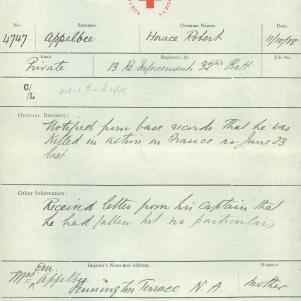 No. Surname. Christian Names. Date.
4747 Appelbee Horace Robert 11/10/18
Rank Regiment, &c. File No.
Private 13 Reinforcements 32nd Batt.
C/L
Official Reports:
Notified from base records that he was
killed in action in France on June 23
last
Other Information:
Received letter from his Captain that
he had fallen but no particulars
Inquirer's Name and Address. Relation
Mrs Em. Appelbee
Pennington Terrace N A Mother